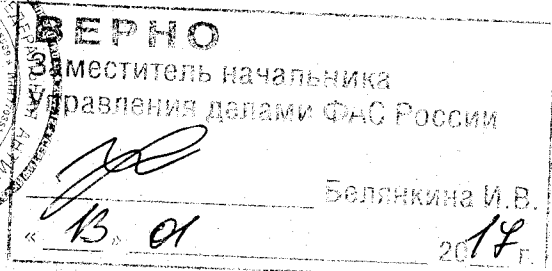 ВЕРНО
Заместитель начальника
Управления делами ФАС России
Белянкина И.В.
« 13 » 01 2017 г.